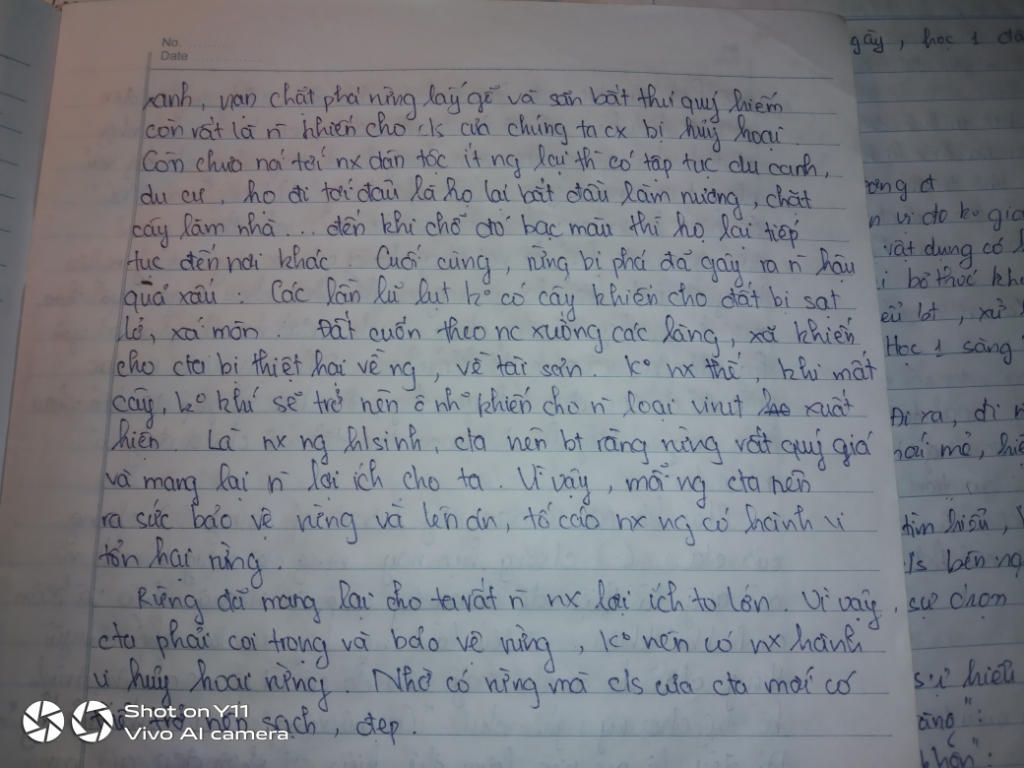 No.
Date
xanh, nạn chặt phá rừng lấy gỗ và săn bắt thú quý hiếm
còn rất là n̄ khiến cho c/s của chúng ta cx bị hủy hoại.
Còn chưa nói tới nx dân tộc ít ng lại thì có tập tục du canh,
du cư, họ đi tới đâu là họ lại bắt đầu làm nương, chặt
cây làm nhà ... đến khi chỗ đó bạc màu thì họ lại tiếp
tục đến nơi khác. Cuối cùng, rừng bị phá đã gây ra n̄ hậu
quả xấu: Các lần lũ lụt ko có cây khiến cho đất bị sạt
lở, xói mòn. Đất cuốn theo nc xuống các làng, xã khiến
cho cta bị thiệt hại về ng, về tài sản. Ko nx thế, khi mất
cây, ko khí sẽ trở nên ô nh khiến cho n̄ loại virut xuất
hiện. Là nx ng h/sinh, cta nên bt rằng rừng rất quý giá
và mang lại n̄ lợi ích cho ta. Vì vậy, mỗi ng cta nên
ra sức bảo vệ rừng và lên án, tố cáo nx ng có hành vi
tổn hại rừng.
Rừng đã mang lại cho ta rất n̄ nx lợi ích to lớn. Vì vậy,
cta phải coi trọng và bảo vệ rừng, ko nên có nx hành
vi hủy hoại rừng. Nhờ có rừng mà c/s của cta mới có
trở nên sạch, đẹp.
Shot on Y11
Vivo AI camera
gây, học 1
vật dụng có
Học 1 sàng
Đi ra, đi
tìm hiểu,
sự chọn
sự hiểu